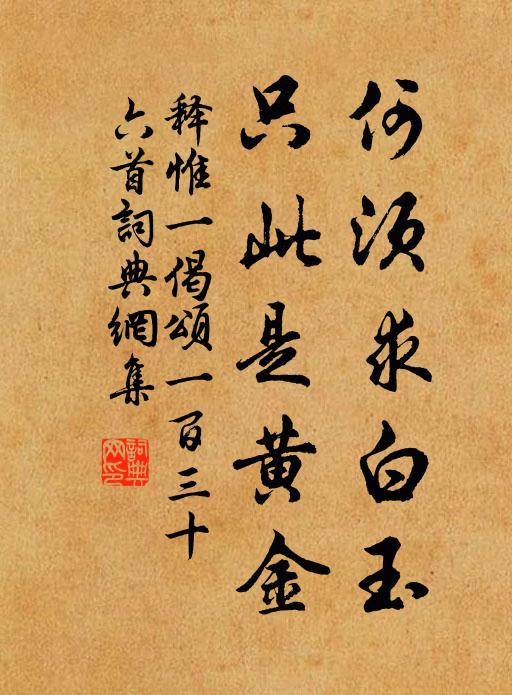 何須求白玉
只此是黃金
释惟一偈頌一百三十
六首詞典網集
詞典網印